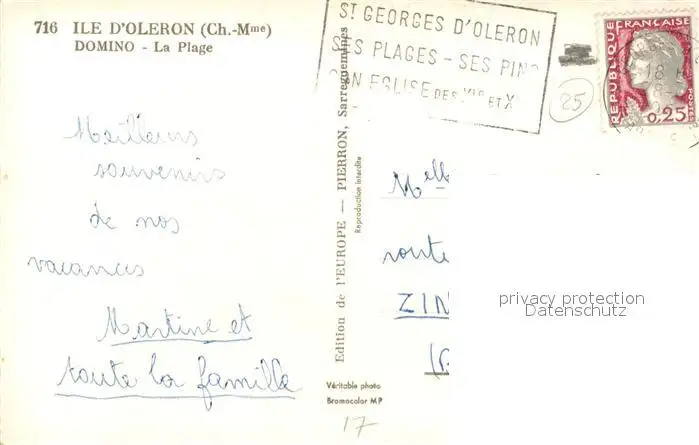 716 ILE D'OLERON (Ch.-Mme)
DOMINO - La Plage
Meilleurs
souvenirs
de nos
vacances
Martine et
toute la famille
Edition de l'EUROPE — PIERRON, Sarreguemines
Reproduction interdite
Véritable photo
Bromocolor MP
17
ST GEORGES D'OLERON
SES PLAGES - SES PINS
SON EGLISE DES XIe ET X
25
REPUBLIQUE FRANÇAISE
POSTES
0,25
Melle
route
ZIN
privacy protection
Datenschutz